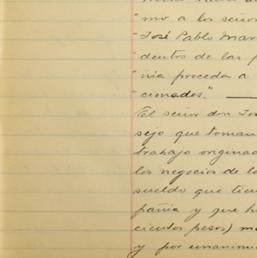 "mo a los señor
"José Pablo Mar
"dentes de las p
"ñia proceda a
"cionados."
El señor don Jo
sejo que toman
trabajo originad
los negocios de l
sueldo que tien
pañia y que h
cientos pesos) m
y por unanim